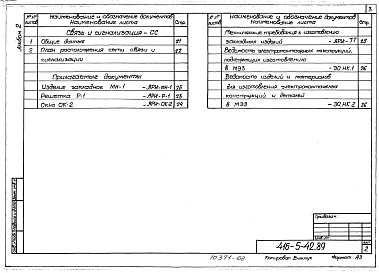 3
Альбом 2
№№ листов
Наименование и обозначение документов
Наименование листа
Стр.
Связь и сигнализация - СС
1 Общие данные 21
2 План расположения сети связи и сигнализации 22
Прилагаемые документы
Изделие закладное МН-1 -АРИ-МН-1 23
Решетка Р-1 -АРИ-Р-1 23
Окно ОК-2 -АРИ-ОК-2 24
№№ листов
Наименование и обозначение документов
Наименование листа
Стр.
Технические требования к изготовлению
закладных изделий -АРИ-ТТ 25
Ведомость электромонтажных конструкций,
подлежащих изготовлению
в МЭЗ -ЭО.НК.1 26
Ведомость изделий и материалов
для изготовления электромонтажных
конструкций и деталей
в МЭЗ -ЭО.НК.2 26
Привязан:
Инв.№
416-5-42.89
Лист
2
10371-02
Копировал
Формат А3